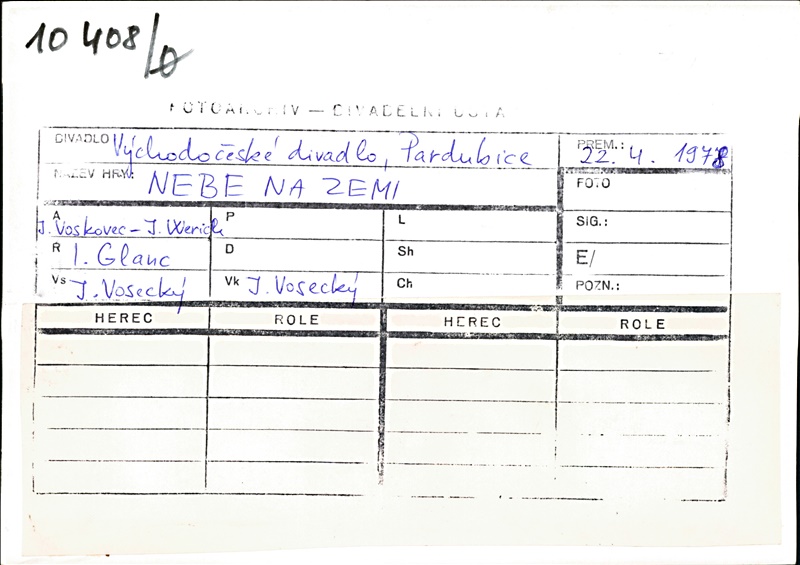 10 408/0
FOTOARCHIV — DIVADELNÍ ÚSTAV
DIVADLO Východočeské divadlo, Pardubice PREM.: 22. 4. 1978
NÁZEV HRY: NEBE NA ZEMI FOTO
A J. Voskovec - J. Werich P L SIG.:
R I. Glanc D Sh E/
Vs J. Vosecký Vk J. Vosecký Ch POZN.:
HEREC ROLE HEREC ROLE